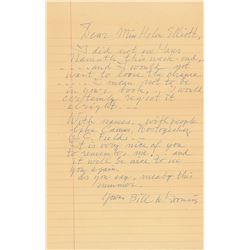 Dear Miss Helen Elliott,
I did not see Hays
this week end,
and I would not
want to loose the chance
I mean, just to be
in your book, I would
certainly regret it
alright
With names, with people
like
Fields
It is very nice of you
to remember me, and
it will be nice to see
you again
as you say, maybe this
summer.
Yours Bill de Kooning